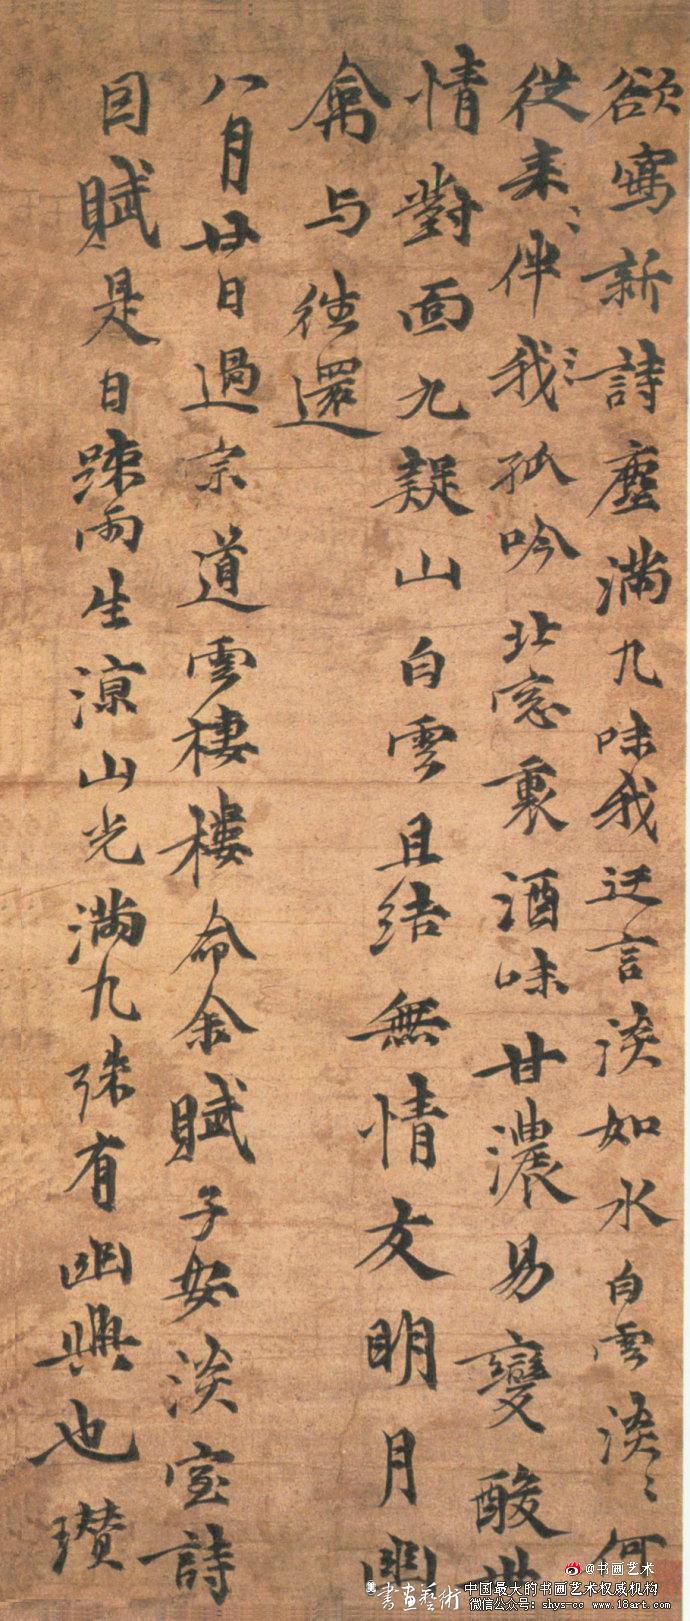 欲寫新詩塵滿几味我迂言淡如水白雲淡〻何
從来伴我孤吟北窓裏酒味甘濃易變酸世
情對面九疑山白雲且結無情友明月幽
禽与往還
八月廿日過宗道雲棲樓命余賦子安淡室詩
因賦是日疎雨生涼山光滿几殊有幽興也瓚
@书画艺术
書畫藝術 中国最大的书画艺术权威机构
微信公众号: shys-cc www.18art.com